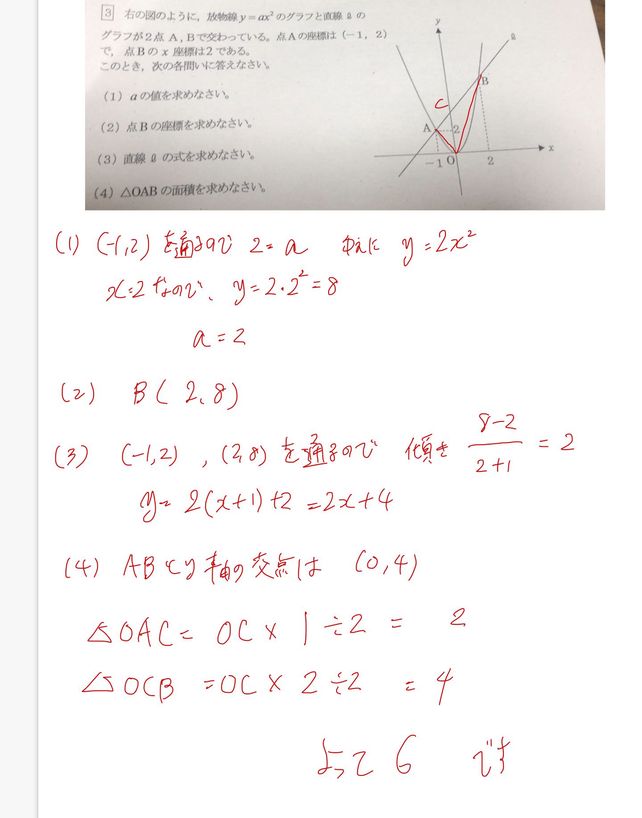 3 右の図のように，放物線 y=ax² のグラフと直線 ℓ の
グラフが2点 A, B で交わっている。点Aの座標は（－1，2）
で，点Bの x 座標は2である。
このとき，次の各問いに答えなさい。
（1）a の値を求めなさい。
（2）点Bの座標を求めなさい。
（3）直線 ℓ の式を求めなさい。
（4）△OABの面積を求めなさい。
y
ℓ
B
C
A
2
－1
O
2
x
(1) (-1,2) を通るので 2=a ゆえに y=2x²
x=2なので、y=2・2²=8
a=2
(2) B(2,8)
(3) (-1,2) , (2,8) を通るので 傾き 8-2/2+1 = 2
y=2(x+1)+2=2x+4
(4) ABとy軸の交点は (0,4)
△OAC= OC×1÷2= 2
△OCB =OC×2÷2 =4
よって 6 です